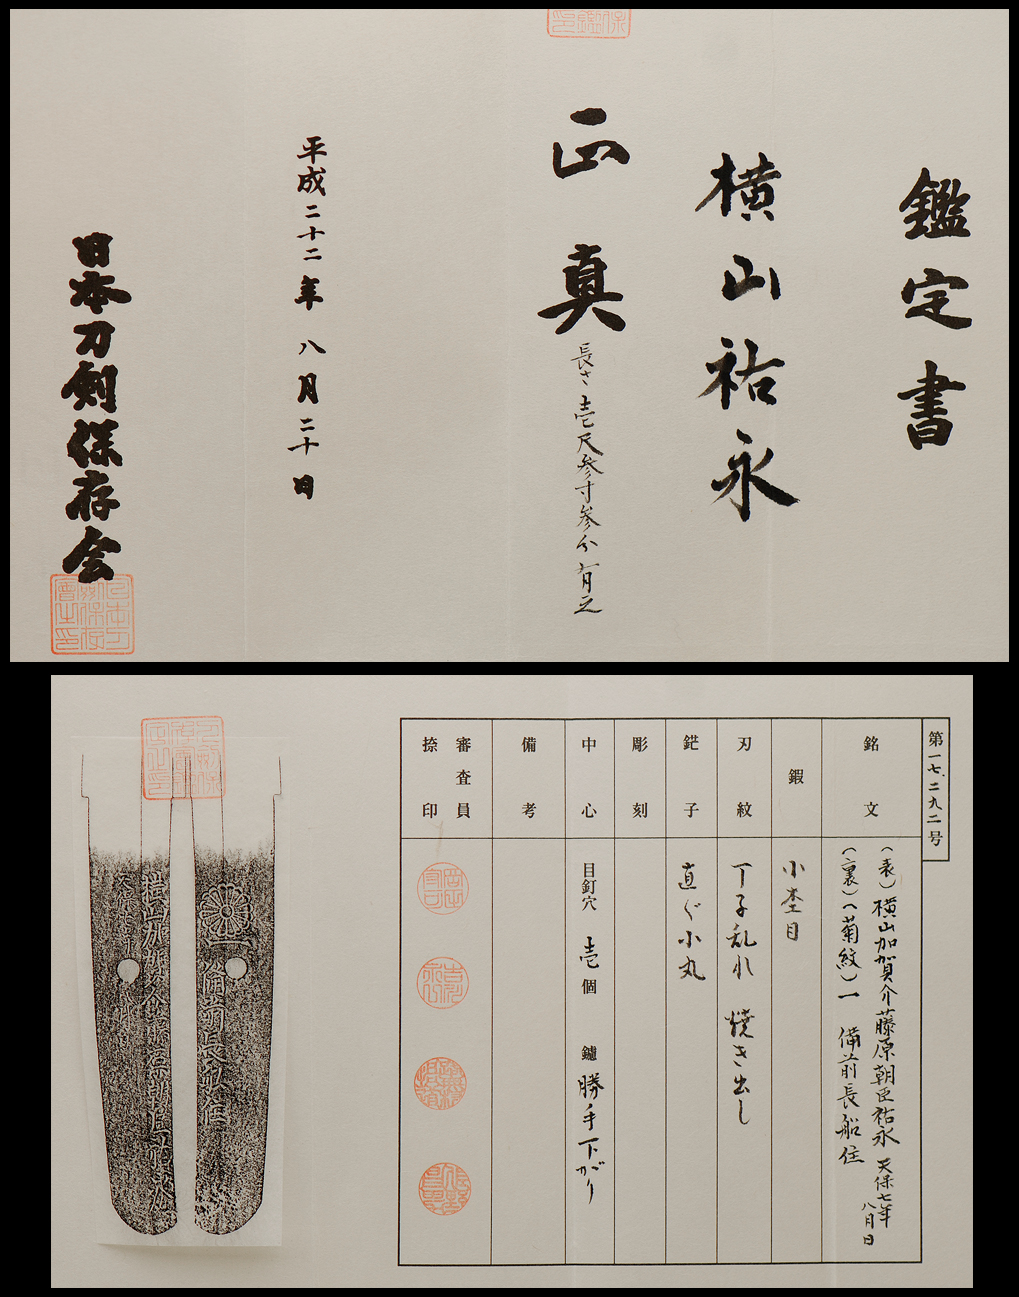 鑑定書
横山祐永
正真
長さ壱尺参寸参分有之
平成二十二年八月二十日
日本刀剣保存会
第一七二九二号
銘文
(表)横山加賀介藤原朝臣祐永 天保七年八月日
(裏)(菊紋)一 備前長船住
鍜
小杢目
刃紋
丁子乱れ 焼き出し
鋩子
直ぐ小丸
彫刻
中心
目釘穴 壱個 鑢 勝手下がり
備考
審査員
捺印
備前長船住